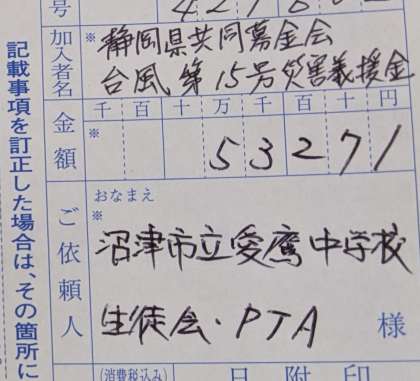 号
加入者名
※
静岡県共同募金会
台風第15号災害義援金
金額
千百十万千百十円
※
53271
ご依頼人
おなまえ
※
沼津市立愛鷹中学校
生徒会・PTA 様
記載事項を訂正した場合は、その箇所に
(消費税込み)
日附印